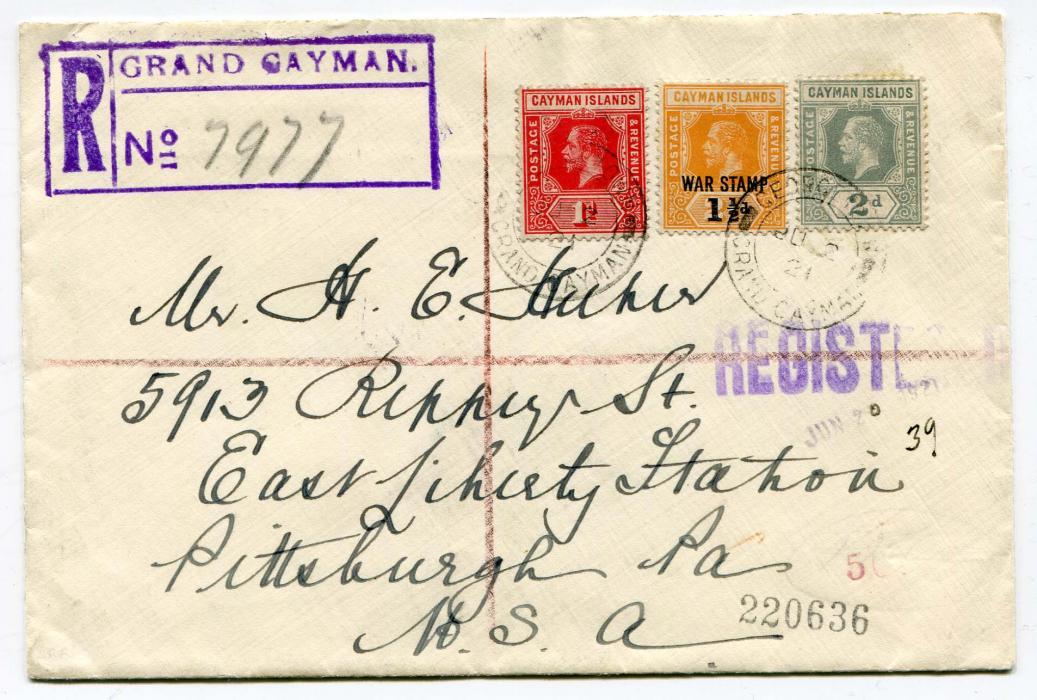 R GRAND CAYMAN.
No 7977
CAYMAN ISLANDS
POSTAGE & REVENUE
1d
CAYMAN ISLANDS
POSTAGE & REVENUE
WAR STAMP
1½d
CAYMAN ISLANDS
POSTAGE & REVENUE
2d
21
GRAND CAYMAN
GEORGE
JU 2
21
GRAND CAYMAN
Mr. H. E. Huber
REGISTE
5913 Rippey St.
JUN 2 1921
39
East Liberty Station
Pittsburgh Pa
5
U.S.A
220636